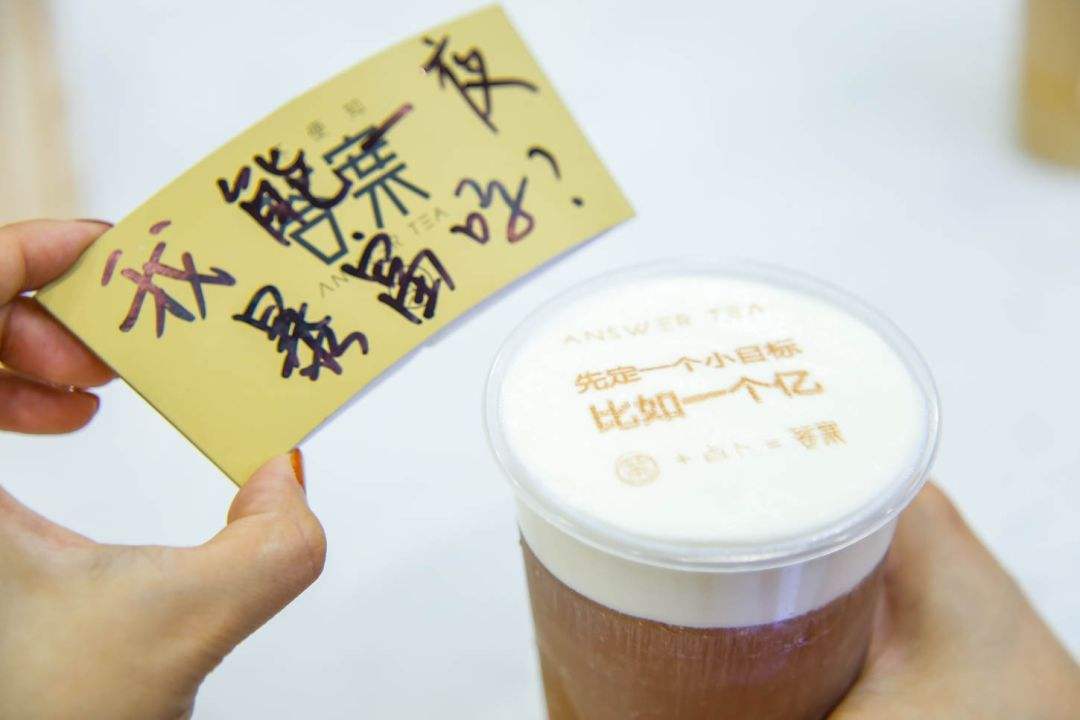 我能一夜
暴富吗?
便知
答案
ANSWER TEA
ANSWER TEA
先定一个小目标
比如一个亿
茶+占卜=答案